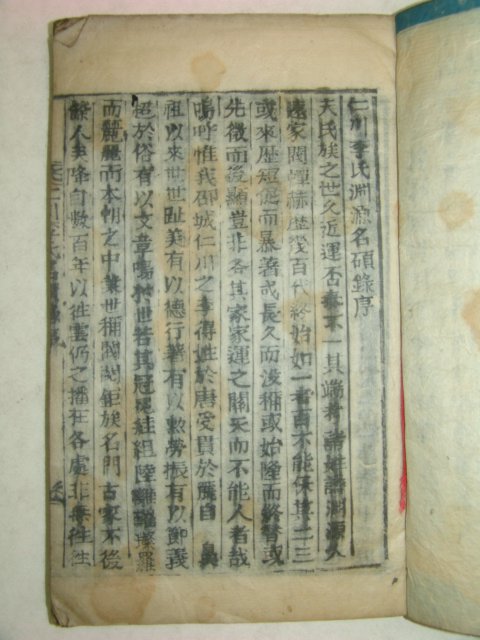 仁川李氏淵源名碩錄序
夫氏族之世久近運否泰不一其端考諸姓譜淵源久
遠家閥嬋赫歷後百代終始如一者百不能保其二三
或來歷短促而暴著或長久而沒稱或始隆而終替或
先微而後顯豈非各其家家運之關天而不能人者哉
嗚呼惟我邵城仁川之李得姓於唐受貫於麗自
祖以來世世趾美有以德行著有以勲勞振有以節義
裕有以文章鳴於世若其冠冕珪組陸離璀璨羅
而麗麗而本朝之中葉世稱閥閱鉅族名門古家不後
諸人矣降自數百年以雲仍之播在各處非